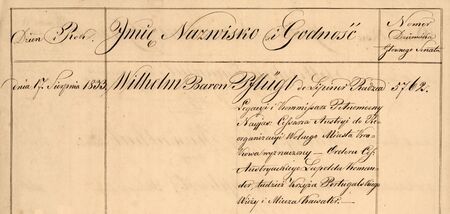 Dzień i Rok. Imię Nazwisko i Godność Nomer Dziennika Głównego Senatu
dnia 17. Sierpnia 1833. Wilhelm Baron Pflügl de Lissinez Radzca 5762.
Legacyi i Kommissarz Pełnomocny
Najjaś. Cesarza Austryi do Re
organizacyi Wolnego Miasta Kra-
kowa wyznaczony — Orderu Ces.
Austryackiego Leopolda Koman-
dor, tudzież Krzyża Portugalskiego
Wieży i Miecza Kawaler. —